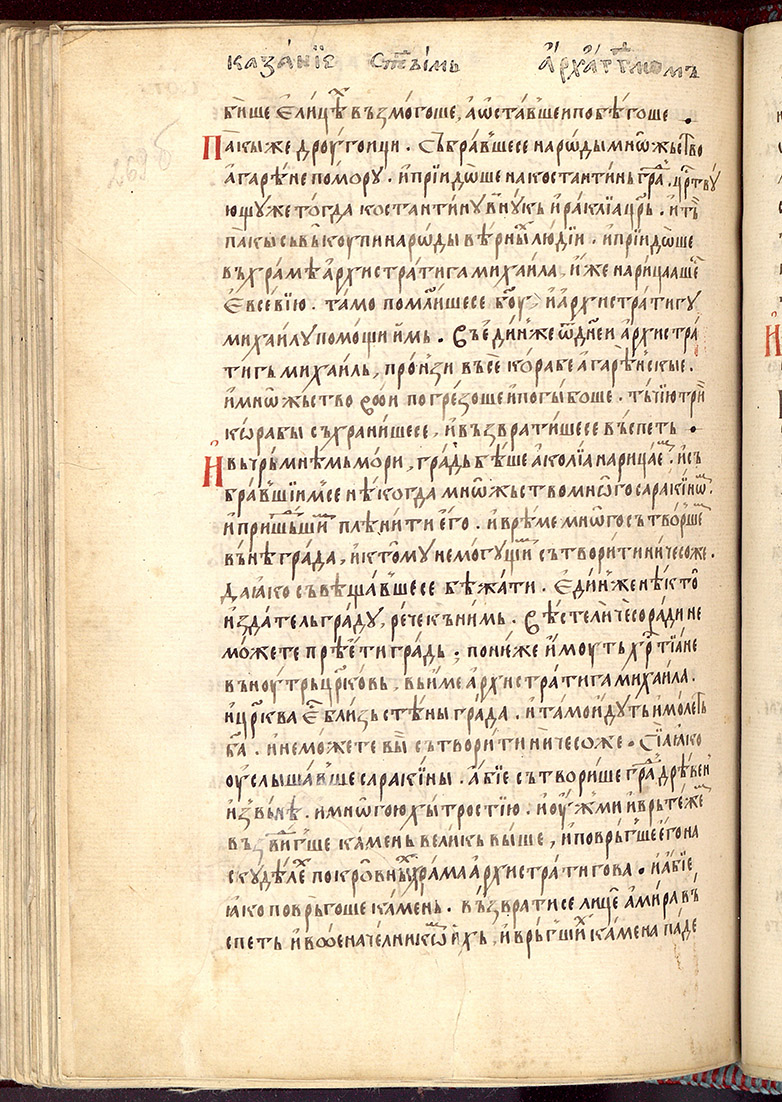 казанїе ст҃ымь архагг҃лѡмъ
бише. Єлицѣ възмогоше, а ѡставшеи побѣгоше .
Пакы же дроугоици . Събравшесе народы мнѡжьство
агарѣне по мору . и прїидѡше на костантинь гра҃ . цр҃тву
ющу же тогда костантину внукь ираклїа цр҃ь . и тъ
пакы сьвькоупи народы вѣрныхь людїи . и прїидѡше
въ храмь архистратига михаила, иже нарицааше
Евсевїю . тамо помлишесе бг҃оу, и архистратигу
михаилу помощи имь . Въ единже ѿ днеи архистра
тигь михаиль, пронзи въсе корабе агарѣнскые .
и мнѡжьство погрезоше и погыбоше . тъчїю три
корабы съхранишесе, и възвратишесе въспеть .
И въ чрьмнѣмь мори, градь бѣше аколїа нарицае . и съ
бравшїимсе нѣкогда мнѡжьство мнѡго саракинѡ .
и пришьдши плѣнити его . и врѣме мнѡго сътворше
вънѣ града, и к томоу не могущи сътворити ничесоже .
Да іако съвѣщавшесе бѣжати . Единже нѣкто
издатель граду, рече къ нимь . Вѣсте ли чесо ради не
можете прѣети градь ; понеже имоуть хр҃тїане
вьноутрь црковь, вь име архистратига михаила .
и црква е҃ близь стѣны града . и тамо идуть и молеть
ба҃ . и не можете вы сътворити ничесоже . Сїа іако
оуслышавше саракины . абїе сътворише гра҃ дрѣвен
извьнѣ . и мнѡгою хытростїю . и оужми и врьтежем
въздвигше камень великь выше, и поврьгше его на
скудѣле покровныхь храма архистратигова . и абїе
іако поврьгоше камень . възвратисе лице амира въ
спеть и вьсе начелникѡ ихь, и врьгшїихь камена паде